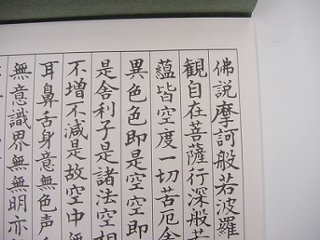 佛說摩訶般若波羅
觀自在菩薩行深般若
蘊皆空度一切苦厄舍
異色色即是空空即
是舍利子是諸法空相
不增不減是故空中
耳鼻舌身意無色声
無意識界無無明亦